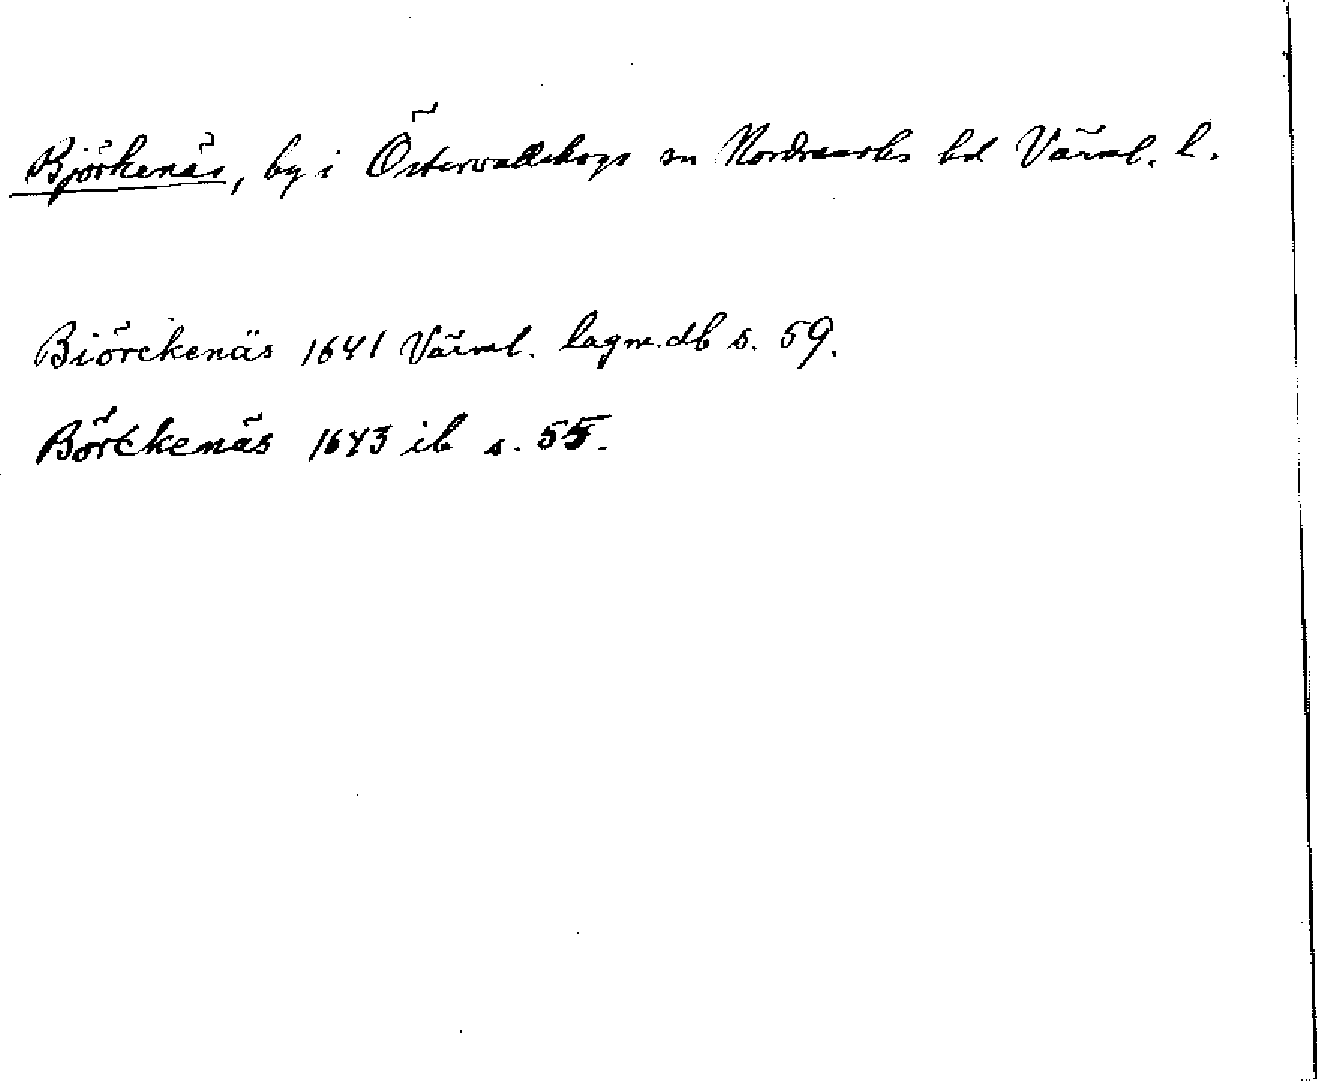 Björkenäs, by i Östervallskogs sn Nordmarks hd Värml. l.
Biörckenäs 1641 Värml. lagm.db s. 59.
Börckenäs 1643 ib s. 55.